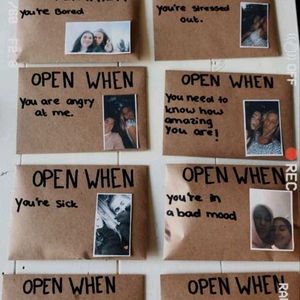 you're Bored
you're stressed
out.
OPEN WHEN
you are angry
at me.
OPEN WHEN
you need to
know how
amazing
you are!
OPEN WHEN
you're sick
OPEN WHEN
you're in
a bad mood
OPEN WHEN
OPEN WHEN
REC